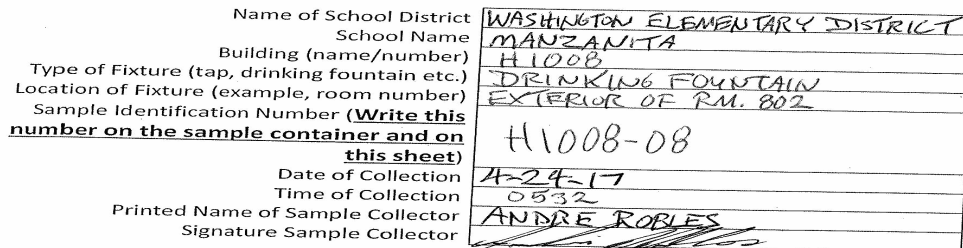 Name of School District WASHINGTON ELEMENTARY DISTRICT
School Name MANZANITA
Building (name/number) H1008
Type of Fixture (tap, drinking fountain etc.) DRINKING FOUNTAIN
Location of Fixture (example, room number) EXTERIOR OF RM. 802
Sample Identification Number (Write this
number on the sample container and on
this sheet) H1008-08
Date of Collection 4-24-17
Time of Collection 0532
Printed Name of Sample Collector ANDRE ROBLES
Signature Sample Collector